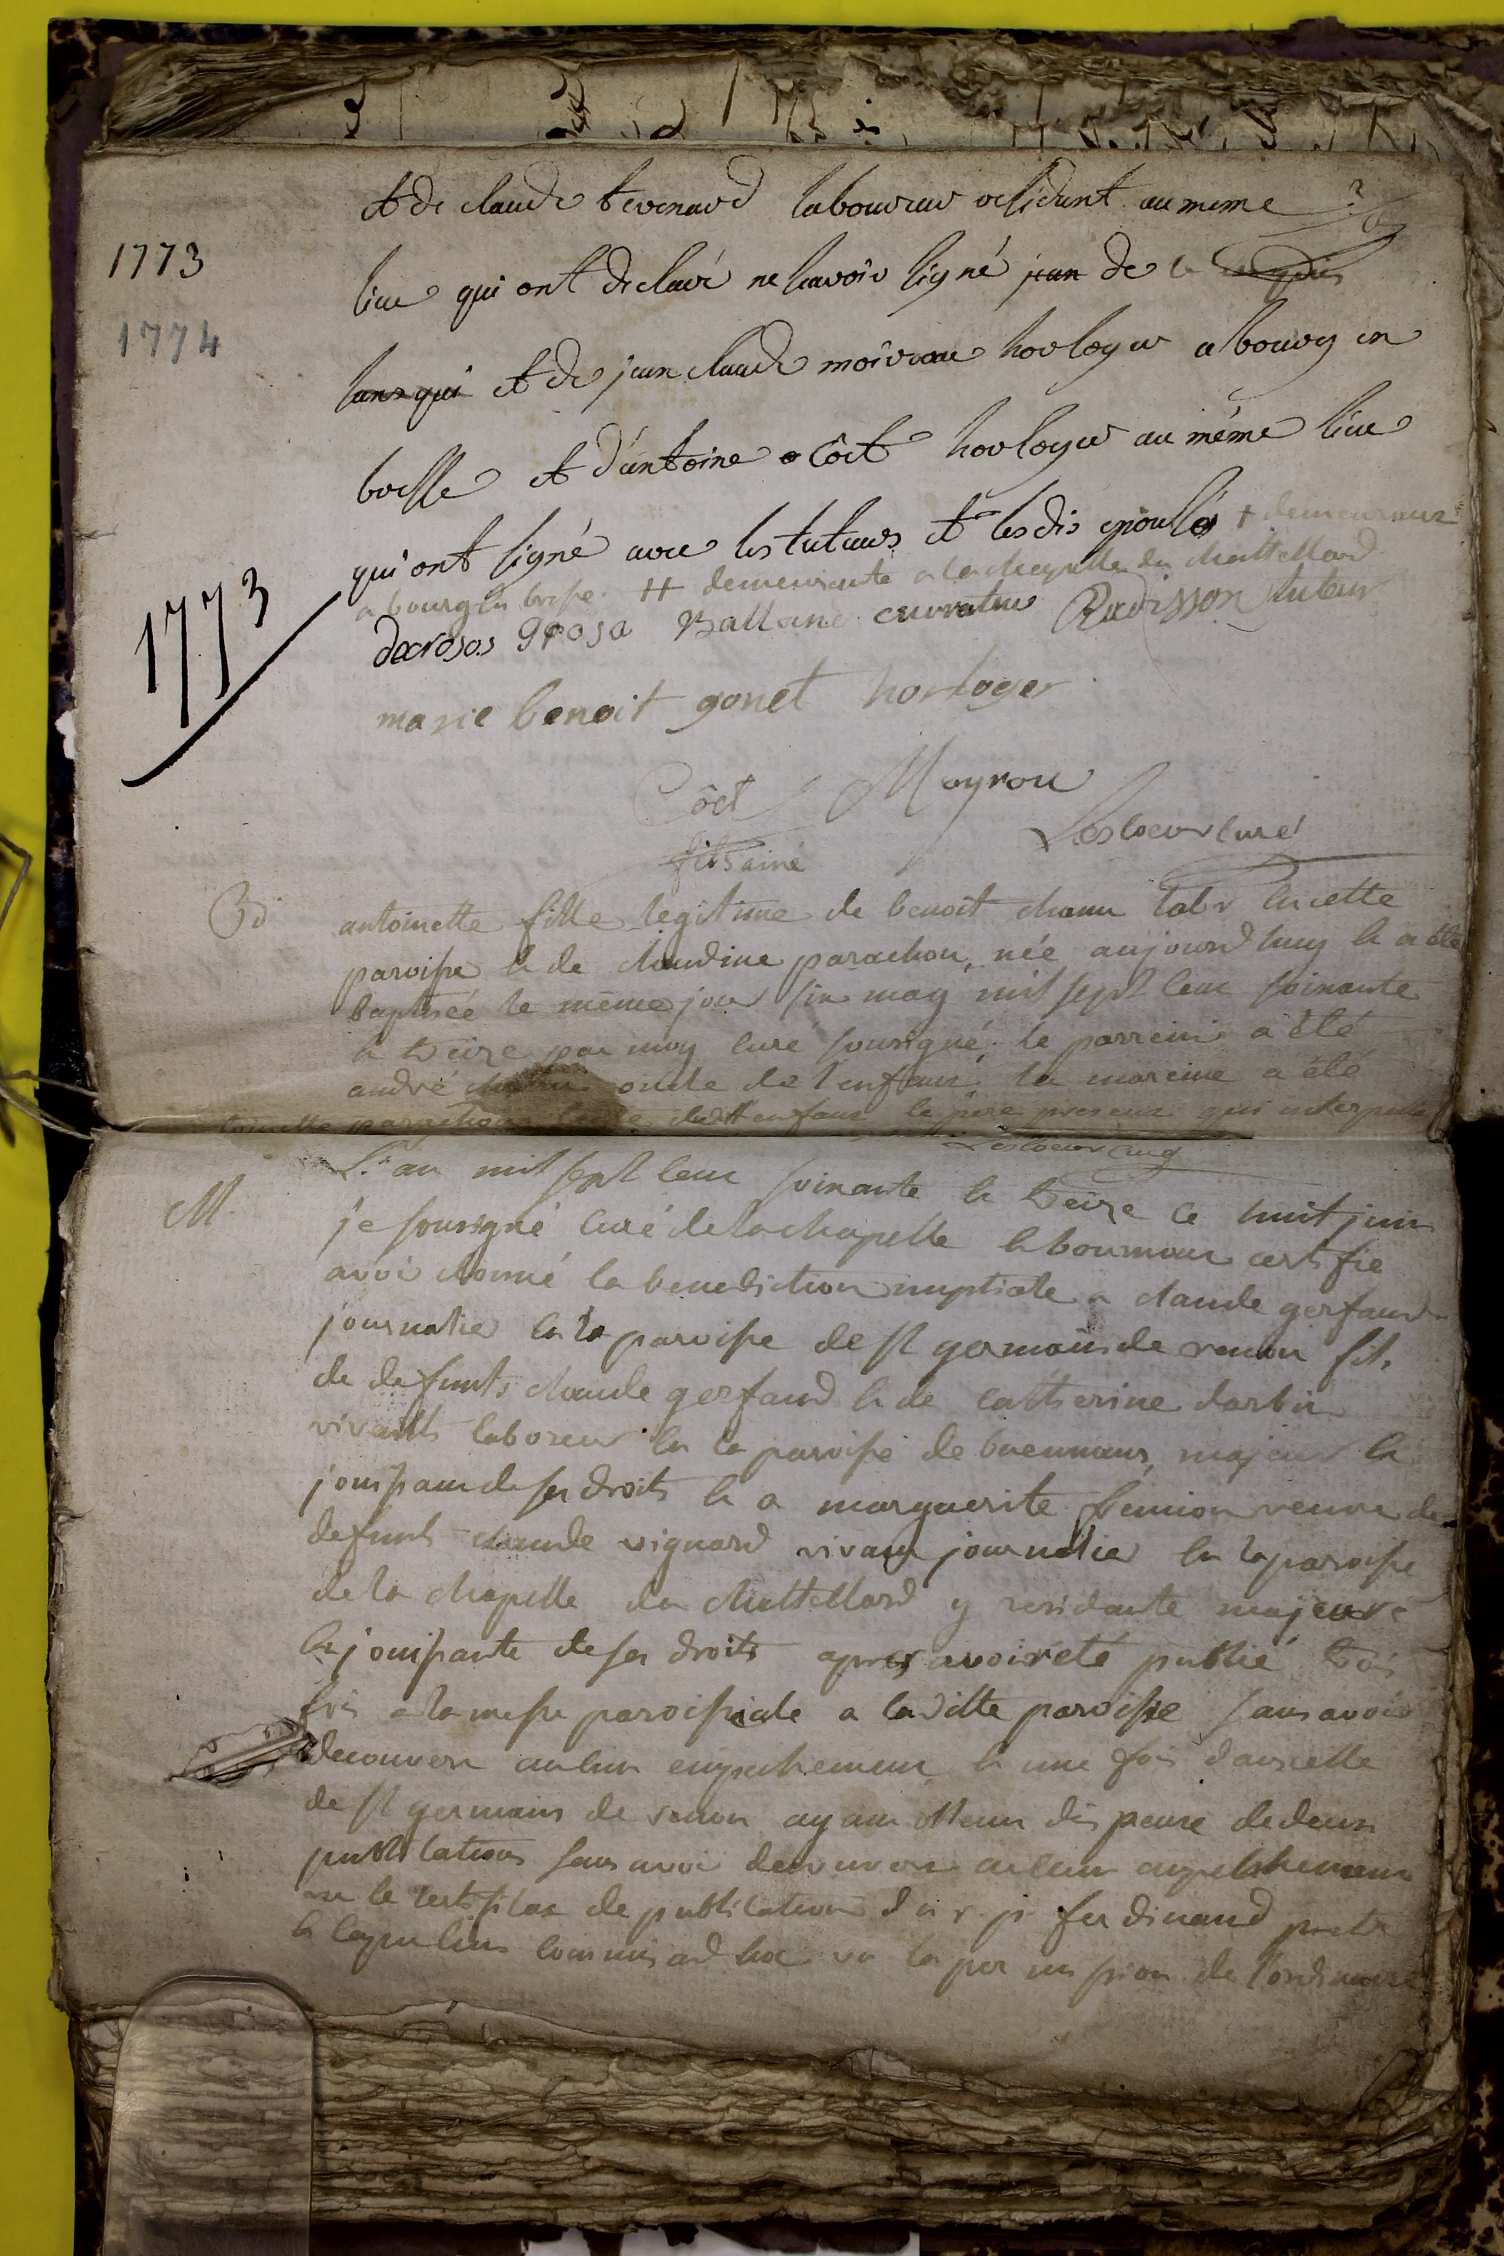 et de claude tevenard laboureur residant au meme
1773
lieu qui ont declaré ne scavoir signé jean de
1774
sans qui et de jean claude moirou horloger a bourg en
bresse et d'antoine côct horloger au même lieu
qui ont signé avec les tuteurs et lesdis epousés + demeurant
a bourg en bresse. ++ demeurante a la chapelle du chattellard
1773
decrosos grosa Ballane curratric Radisson tuteur
marie benoit gonet horloger
Côct Moyrou
fils ainé Lescoeur curé
B antoinette fille legitime de benoit chanu labr en cette
paroisse et de claudine parachon, née aujourd huy et a été
baptisée le même jour six may mil sept cent soixante
et treize par moy curé sousigné, le parrein a été
andré oncle de l'enfant la mareine a été
parachon dudit enfant le pere present qui interpellé
Lescoeur curé
M. L'an mil sept cent soixante et treize ce huit juin
je sousigné curé de la chapelle et boumour certifie
avoir donné la benediction nuptiale a claude gerfaud
journalier en la paroisse de st germain de renon fils
de defunts claude gerfaud et de catherine darbi
vivants laboreur en la paroisse de majeur et
jouissant de ses droits et a marguerite veuve de
defunt claude vignard vivant journalier en la paroisse
de la chapelle du chattellard y residante majeure
et jouissante de ses droits apres avoir été publié trois
fois a la messe paroissiale a la ditte paroisse sans avoir
decouvert aucun empechement et une fois dans celle
de st germain de renon ayant obtenu dispense de deux
publications sans avoir decouvert aucun empechement
vu le certificat de publication du r. p. ferdinand pretre
et capucin commis ad hoc vu la permission de l'ordinaire